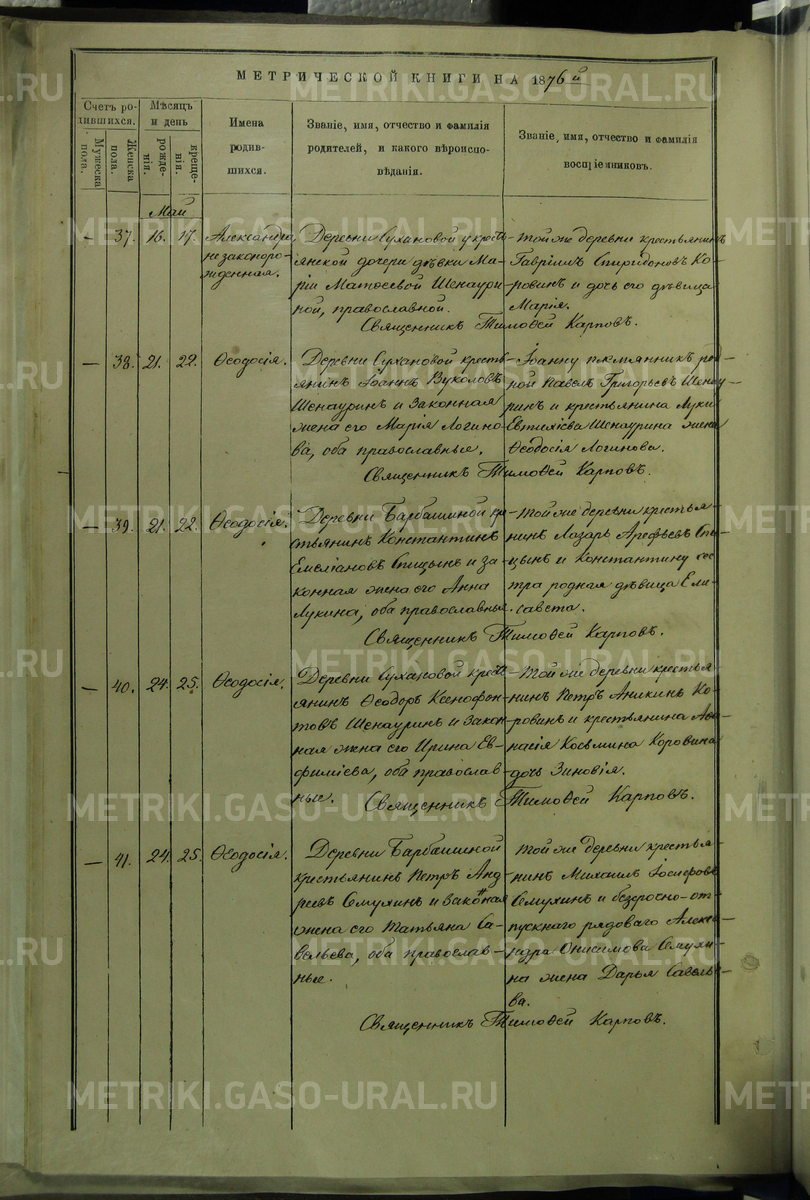 МЕТРИЧЕСКОЙ КНИГИ НА 1876й
Счетъ ро-
дившихся.
Мужеска
пола.
Женска
пола.
Мѣсяцъ
и день
рожде-
нія.
креще-
нія.
Имена
родив-
шихся.
Званіе, имя, отчество и фамилія
родителей, и какого вѣроиспо-
вѣданія.
Званіе, имя, отчество и фамилія
воспріемниковъ.
Май
— 37. 16. 17.
Александра,
незаконоро-
жденная.
Деревни Сухановой у кресть
янской дочери дѣвки Ма-
ріи Матѳеевой Шенаури-
ной, православной.
— Той же деревни крестьянинъ
Гавріилъ Спиридоновъ Ко-
ровинъ и дочь его дѣвица
Марія.
Священникъ Тимоѳей Карповъ.
— 38. 21. 22. Ѳеодосія.
Деревни Сухановой кресть
янинъ Іоаннъ Вуколовъ
Шенауринъ и законная
жена его Марія Логино-
ва, оба православные.
— Іоанну племянникъ род-
ной Павелъ Григорьевъ Шенау-
ринъ и крестьянина Луки
Евтихіева Шенаурина жена
Ѳеодосія Логинова.
Священникъ Тимоѳей Карповъ.
— 39. 21. 22. Ѳеодосія.
Деревни Барбашиной кре
стьянинъ Константинъ
Емеліановъ Спицынъ и за-
конная жена его Анна
Лукина, оба православные.
— Той же деревни крестья-
нинъ Лазарь Арефьевъ Спи-
цынъ и Константину сес-
тра родная дѣвица Ели-
савета.
Священникъ Тимоѳей Карповъ.
— 40. 24. 25. Ѳеодосія.
Деревни Сухановой кресть
янинъ Ѳеодоръ Ксенофон-
товъ Шенауринъ и закон-
ная жена его Ирина Ев-
фиміева, оба православ-
ные.
— Той же деревни крестья-
нинъ Петръ Аникинъ Ко-
ровинъ и крестьянина Аѳа-
насія Косьмина Коровина
дочь Зиновія.
Священникъ Тимоѳей Карповъ.
— 41. 24. 25. Ѳеодосія.
Деревни Барбашиной
крестьянинъ Петръ Анд-
реевъ Семухинъ и законная
жена его Татьяна Са-
вельева, оба православ-
ные.
Той же деревни крестья-
нинъ Михаилъ Іосифовъ
Семухинъ и безсрочно-от-
пускнаго рядоваго Алекс-
андра Онисимова Семухи-
на жена Дарья Савелье-
ва.
Священникъ Тимоѳей Карповъ.
METRIKI.GASO-URAL.RU